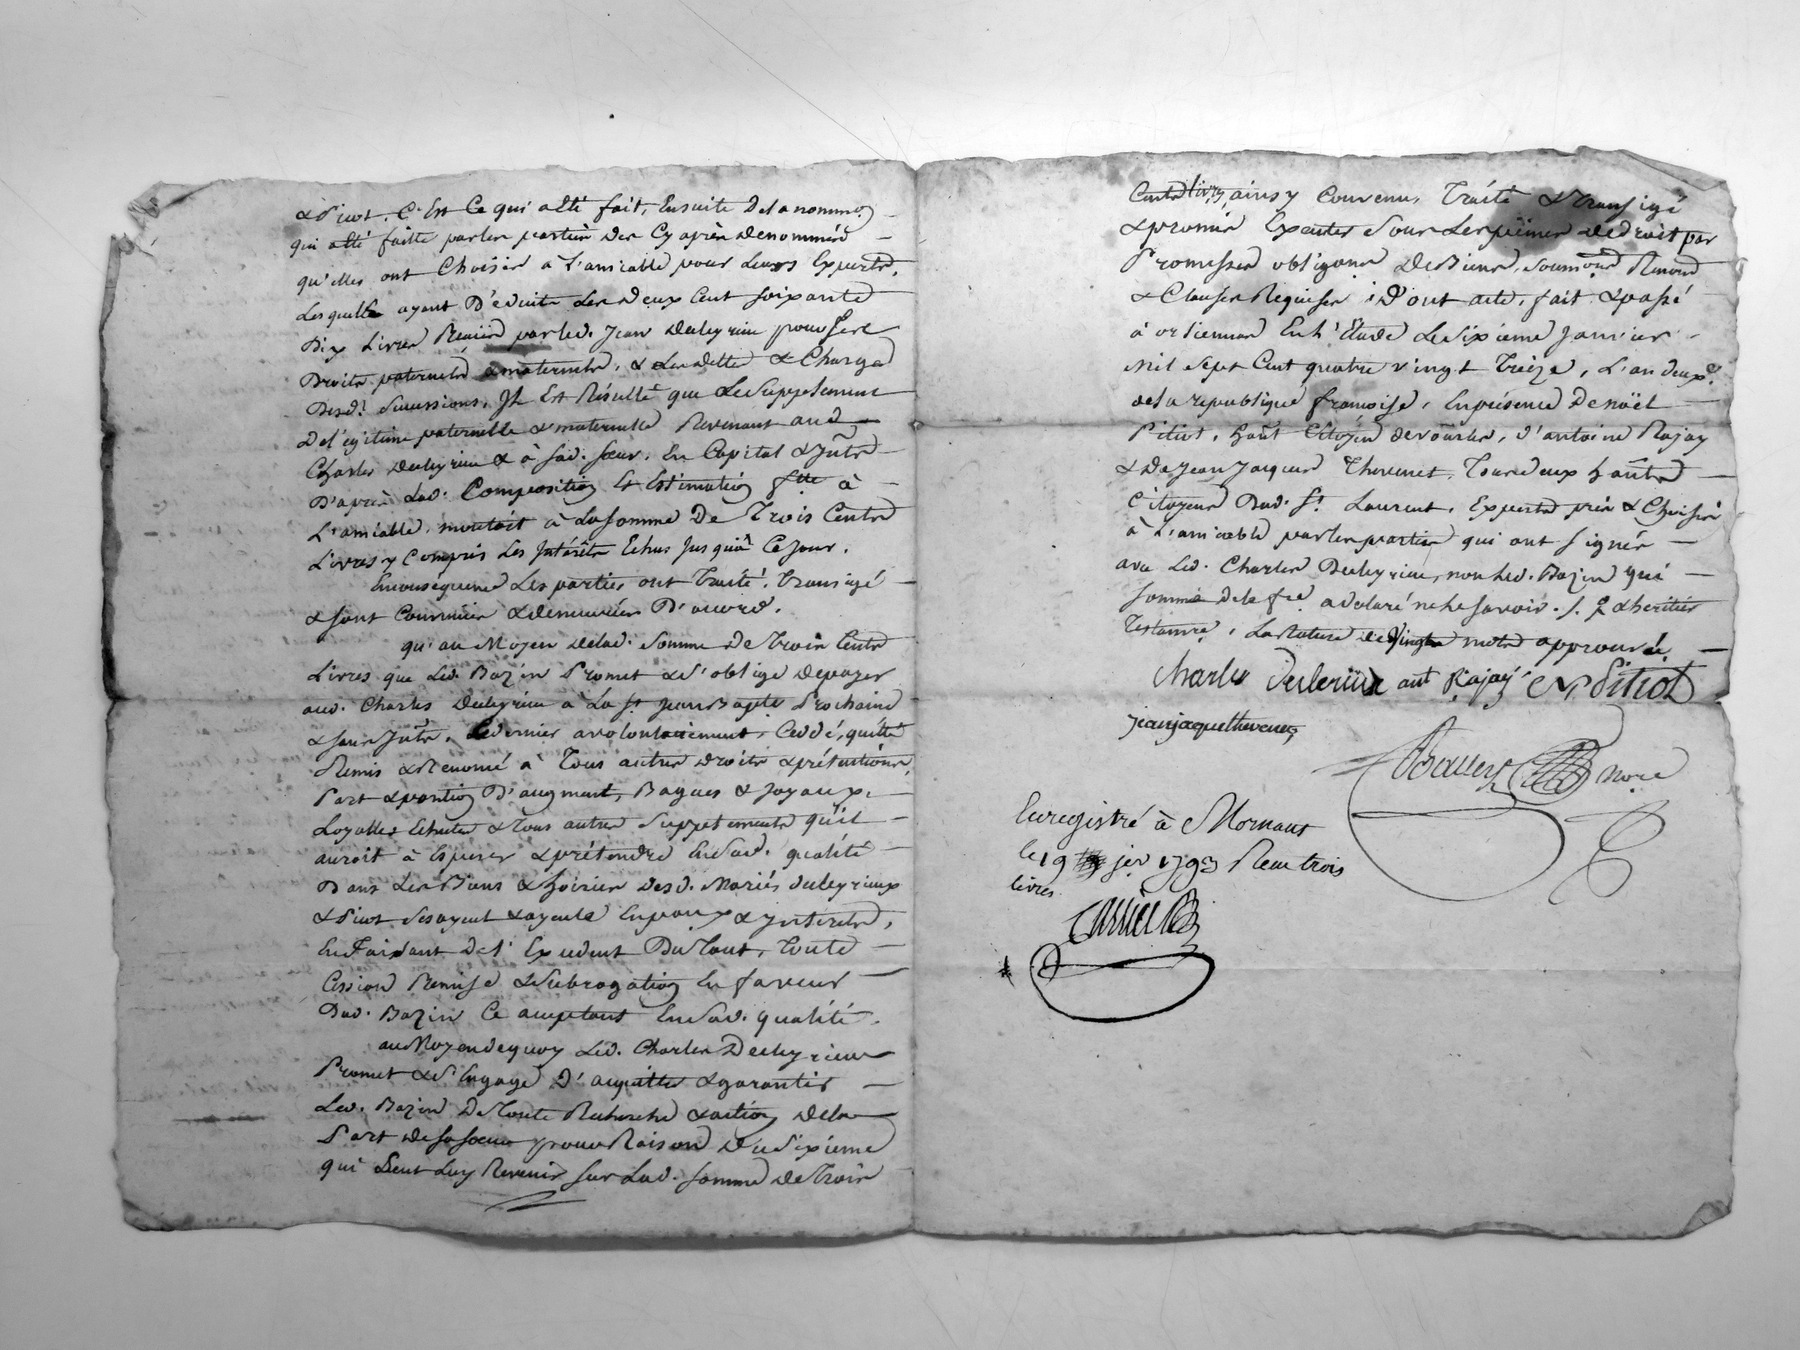 & Piot. C'Est Ce qui a Eté fait, Ensuite De la nomma^on
qui a Eté faitte par les parties des Cy après denommés
qu'elles ont Choisies à L'amiable pour Leurs Experts,
Lesquelles ayant Déduits Les deux Cent soixante
Dix Livres Reçües par led. Jean Duleyrieu pour ses
Droits paternels & maternels, & Les dettes & Charges
Desd. successions, Il Est Résulté que Le Supplement
De Légitime paternelle & maternelle Revenant aud.
Charles Duleyrieu & à sad. sœur, En Capital & Intr.
D'après Lad. Composition Et Estimation fte à
L'amiable, montoit à La somme De Trois Cents
Livres y Compris Les Intérêts Echus Jusqu'à Ce Jour.
En conséquence Les parties ont Traité, Transigé
& sont Convenües & demeurées D'accord.
qu'au Moyen de lad. Somme De Trois Cents
Livres que Led. Bazin Promet & s'oblige de payer
aud. Charles Duleyrieu à La St Jean Baptte Prochaine
& sans Intr. Ce dernier a volontairement, Ceddé, quitté
Remis & Renoncé à Tous autres Droits & prétentions,
Part & portion D'augment, Bagues & Joyaux,
Loyalles Echutes & Tous autres Supplements qu'il
auroit à Esperer & prétendre En Sad. qualité
Dans Les Biens & hoiries desd. Mariés Duleyrieux
& Piot Ses ayeul & ayeule
En Faisant De l'Expedient Du Tout, Toute
Cession Remise & Subrogation En faveur
Dud. Bazin Ce acceptant En Sad. qualité.
au Moyen de quoy Led. Charles Duleyrieu
Promet & s'Engage D'acquitter & garantir
Led. Bazin De Toute Recherche & action de la
Part de sa sœur pour Raison du Sixieme
qui Peut Luy Revenir sur Lad. somme de Trois
Cents livres, ainsy Convenu, Traité & Transigé
& promis Executer Sous Les peines de droit par
Promesses obligons De Biens, soumons Renons
& Clauses Requises ; D'ont acte, fait & passé
à orlienas En L'Etude Le Sixième Janvier
mil Sept Cent quatre vingt Treize, L'an deuxe
de la republique françoise, En présence De Noël
Pitiot, habt Citoyen de d'antoine Rajay
& De Jean Jacques Thevenet, Tous deux habts
Citoyens Dud. St Laurent, Experts pris & Choisis
à L'amiable par les parties qui ont signés
avec Led. Charles Duleyrieu, non Led. Bazin qui
sommé de le fre a déclaré ne le savoir. /. & heritier
Testamre, La Rature de Vingt mots approuvée.
Charles Duleriüx ant Rajay N. Pitiot
jean jaque thevenet
nore
Enregistré à Mornant
le 19 jer 1793 Reçu trois
livres